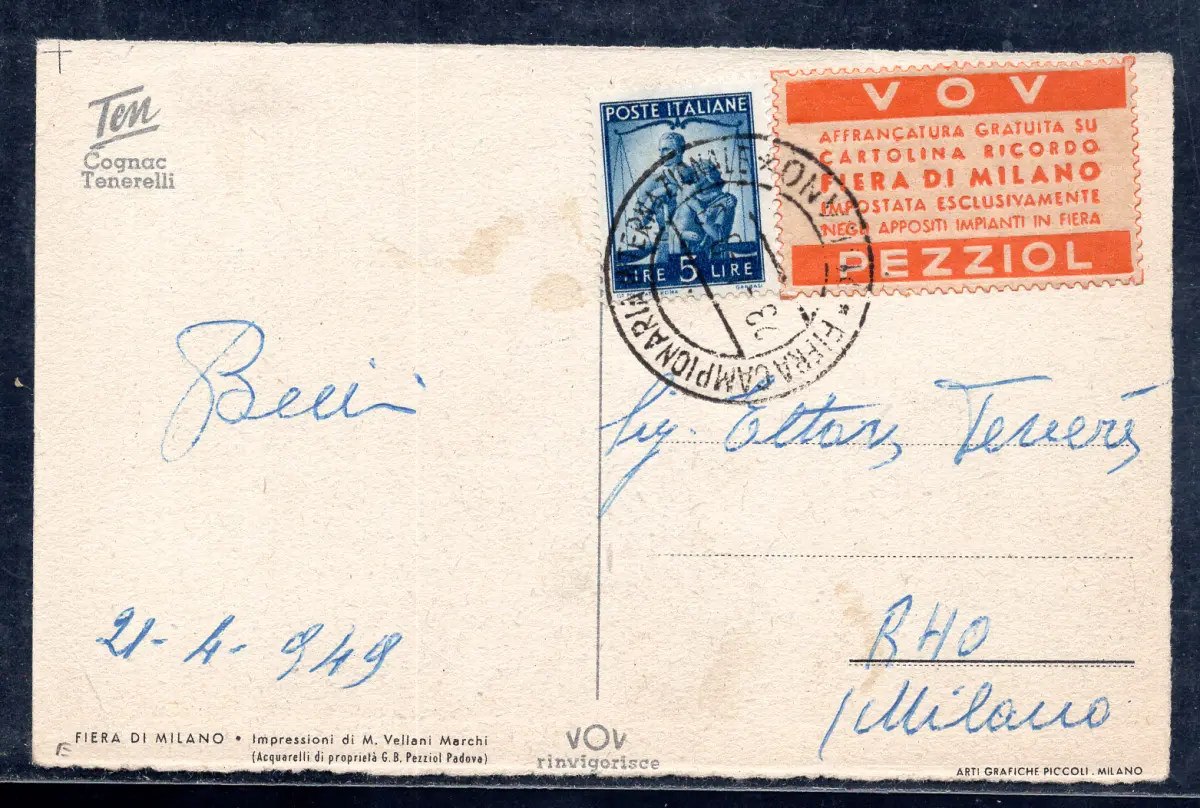 Ten
Cognac
Tenerelli
POSTE ITALIANE
LIRE 5 LIRE
VOV
AFFRANCATURA GRATUITA SU
CARTOLINA RICORDO
FIERA DI MILANO
IMPOSTATA ESCLUSIVAMENTE
NEGLI APPOSITI IMPIANTI IN FIERA
PEZZIOL
MILANO * FIERA CAMPIONARIA INTERNAZIONALE *
23
Sig. Ettore
21-4-949
RHO
(Milano
FIERA DI MILANO • Impressioni di M. Vellani Marchi
(Acquarelli di proprietà G. B. Pezziol Padova)
VOV
rinvigorisce
ARTI GRAFICHE PICCOLI . MILANO